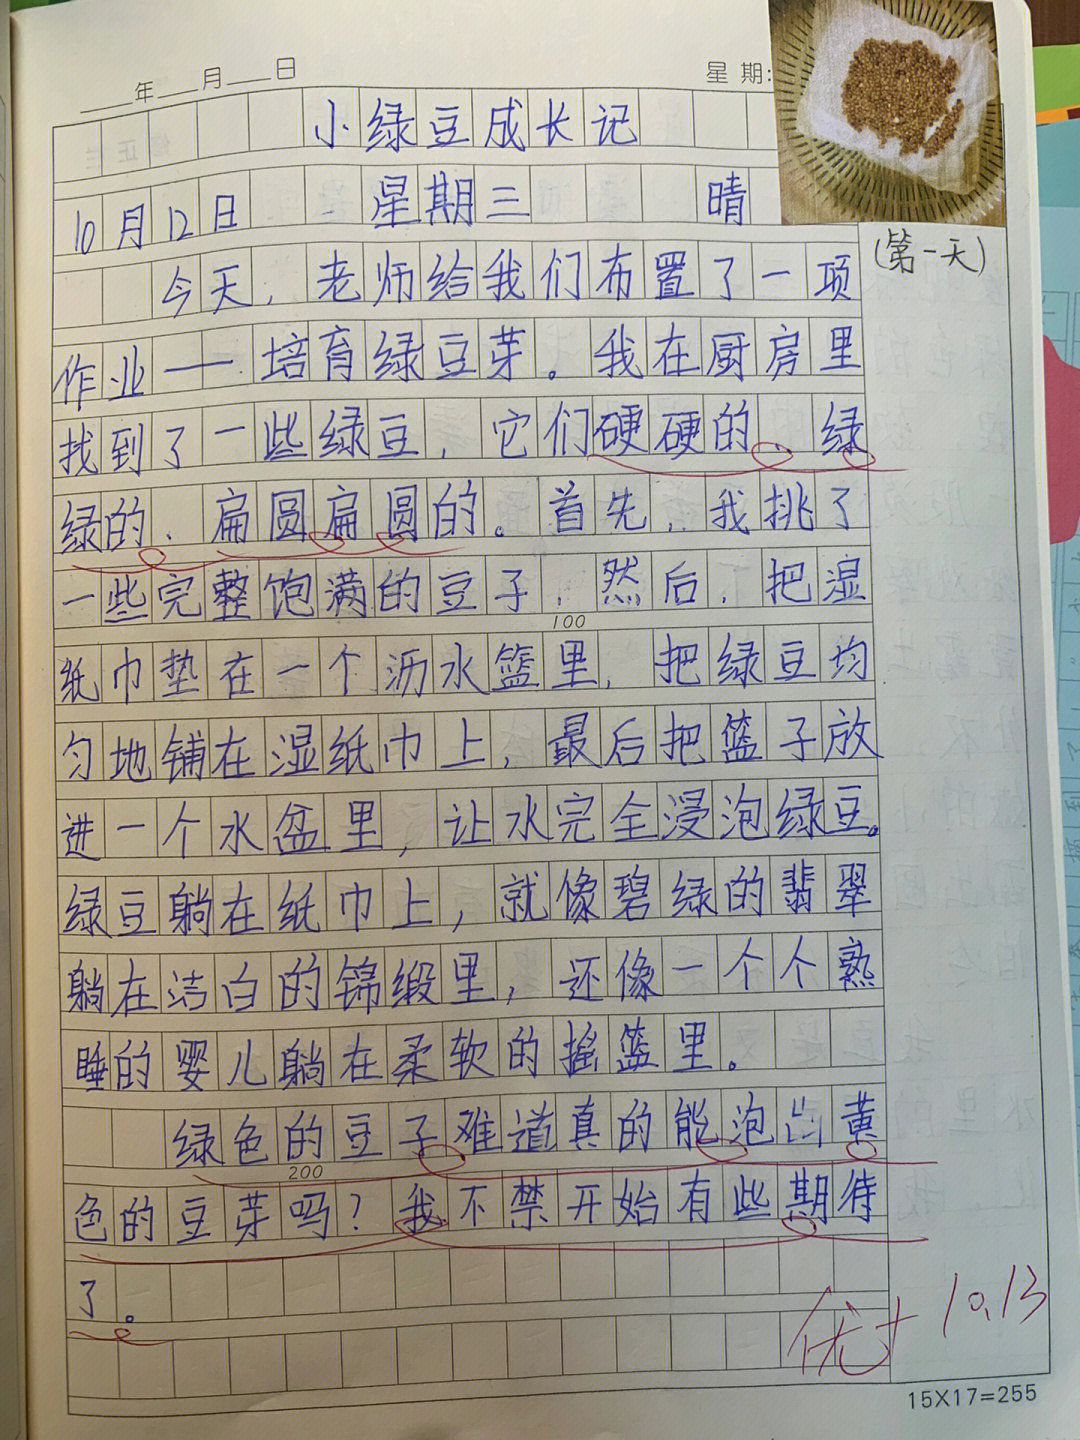 年 月 日
星 期:
小绿豆成长记
10月12日 星期三 晴
(第一天)
今天,老师给我们布置了一项
作业——培育绿豆芽。我在厨房里
找到了一些绿豆,它们硬硬的、绿
绿的、扁圆扁圆的。首先,我挑了
一些完整饱满的豆子,然后,把湿
100
纸巾垫在一个沥水篮里,把绿豆均
匀地铺在湿纸巾上,最后把篮子放
进一个水盆里,让水完全浸泡绿豆。
绿豆躺在纸巾上,就像碧绿的翡翠
躺在洁白的锦缎里,还像一个个熟
睡的婴儿躺在柔软的摇篮里。
绿色的豆子难道真的能泡出黄
200
色的豆芽吗?我不禁开始有些期待
了。
优+ 10.13
15X17=255